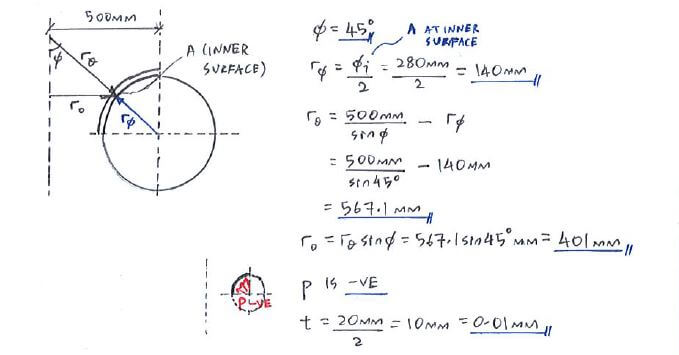 500MM
ϕ
rθ
A (INNER
SURFACE)
r₀
rϕ
P-VE
ϕ = 45°
A AT INNER
SURFACE
rϕ = ϕi/2 = 280MM/2 = 140MM
rθ = 500MM/sinϕ - rϕ
= 500MM/sin45° - 140MM
= 567.1MM
r₀ = rθ sinϕ = 567.1sin45° MM = 401MM
P IS -VE
t = 20MM/2 = 10MM = 0.01MM